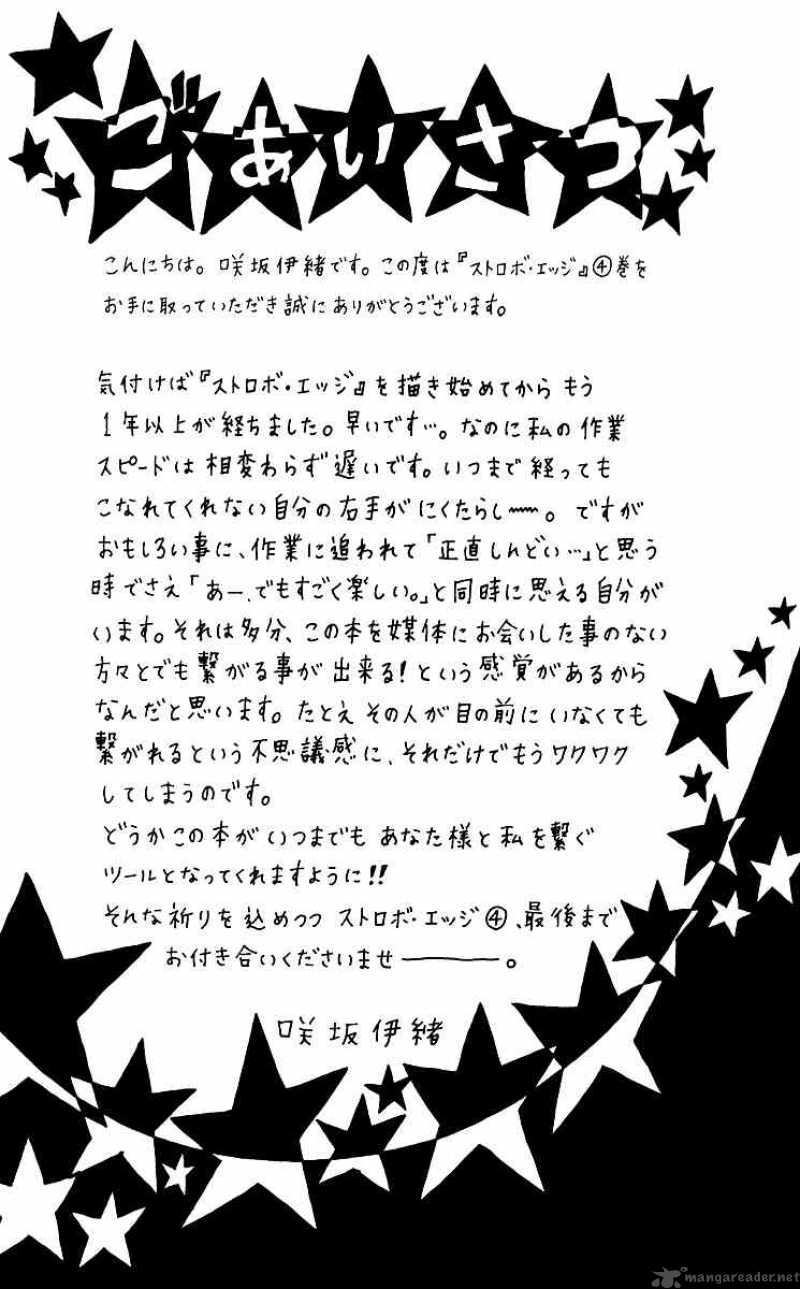 ごあいさつ
こんにちは。咲坂伊緒です。この度は『ストロボ・エッジ』④巻を
お手に取っていただき誠にありがとうございます。
気付けば『ストロボ・エッジ』を描き始めてから もう
1年以上が経ちました。早いです…。なのに私の作業
スピードは相変わらず遅いです。いつまで経っても
こなれてくれない自分の右手がにくたらし〜〜。ですが
おもしろい事に、作業に追われて「正直しんどい…」と思う
時でさえ「あー、でもすごく楽しい。」と同時に思える自分が
います。それは多分、この本を媒体にお会いした事のない
方々とでも繋がる事が出来る!という感覚があるから
なんだと思います。たとえその人が目の前にいなくても
繋がれるという不思議感に、それだけでもうワクワク
してしまうのです。
どうかこの本がいつまでも あなた様と私を繋ぐ
ツールとなってくれますように!!
そんな祈りを込めつつ ストロボ・エッジ④、最後まで
お付き合いくださいませ――――。
咲坂伊緒
mangareader.net